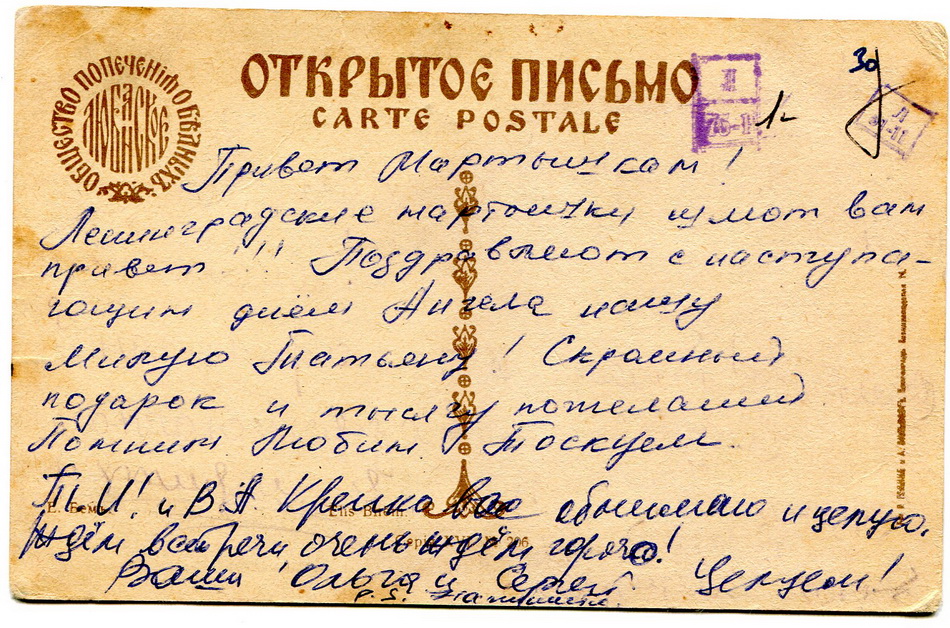 ОБЩЕСТВО ПОПЕЧЕНІЯ О БѢДНЫХЪ
ОТКРЫТОЕ ПИСЬМО
CARTE POSTALE
30
1-
Привет Мартышкам!
Ленинградские мартышки шлют вам
привет!!! Поздравляют с наступа-
ющим днём Ангела нашу
Милую Татьяну! Скромный
подарок и тысячу пожеланий
Помним Любим Тоскуем
Т. И! и В. А. Крепко вас обнимаю и целую.
Ждём встречи очень ждём горячо!
Ваши Ольга и Сергей. Целуем!
P.S.
Е. Бемъ
206